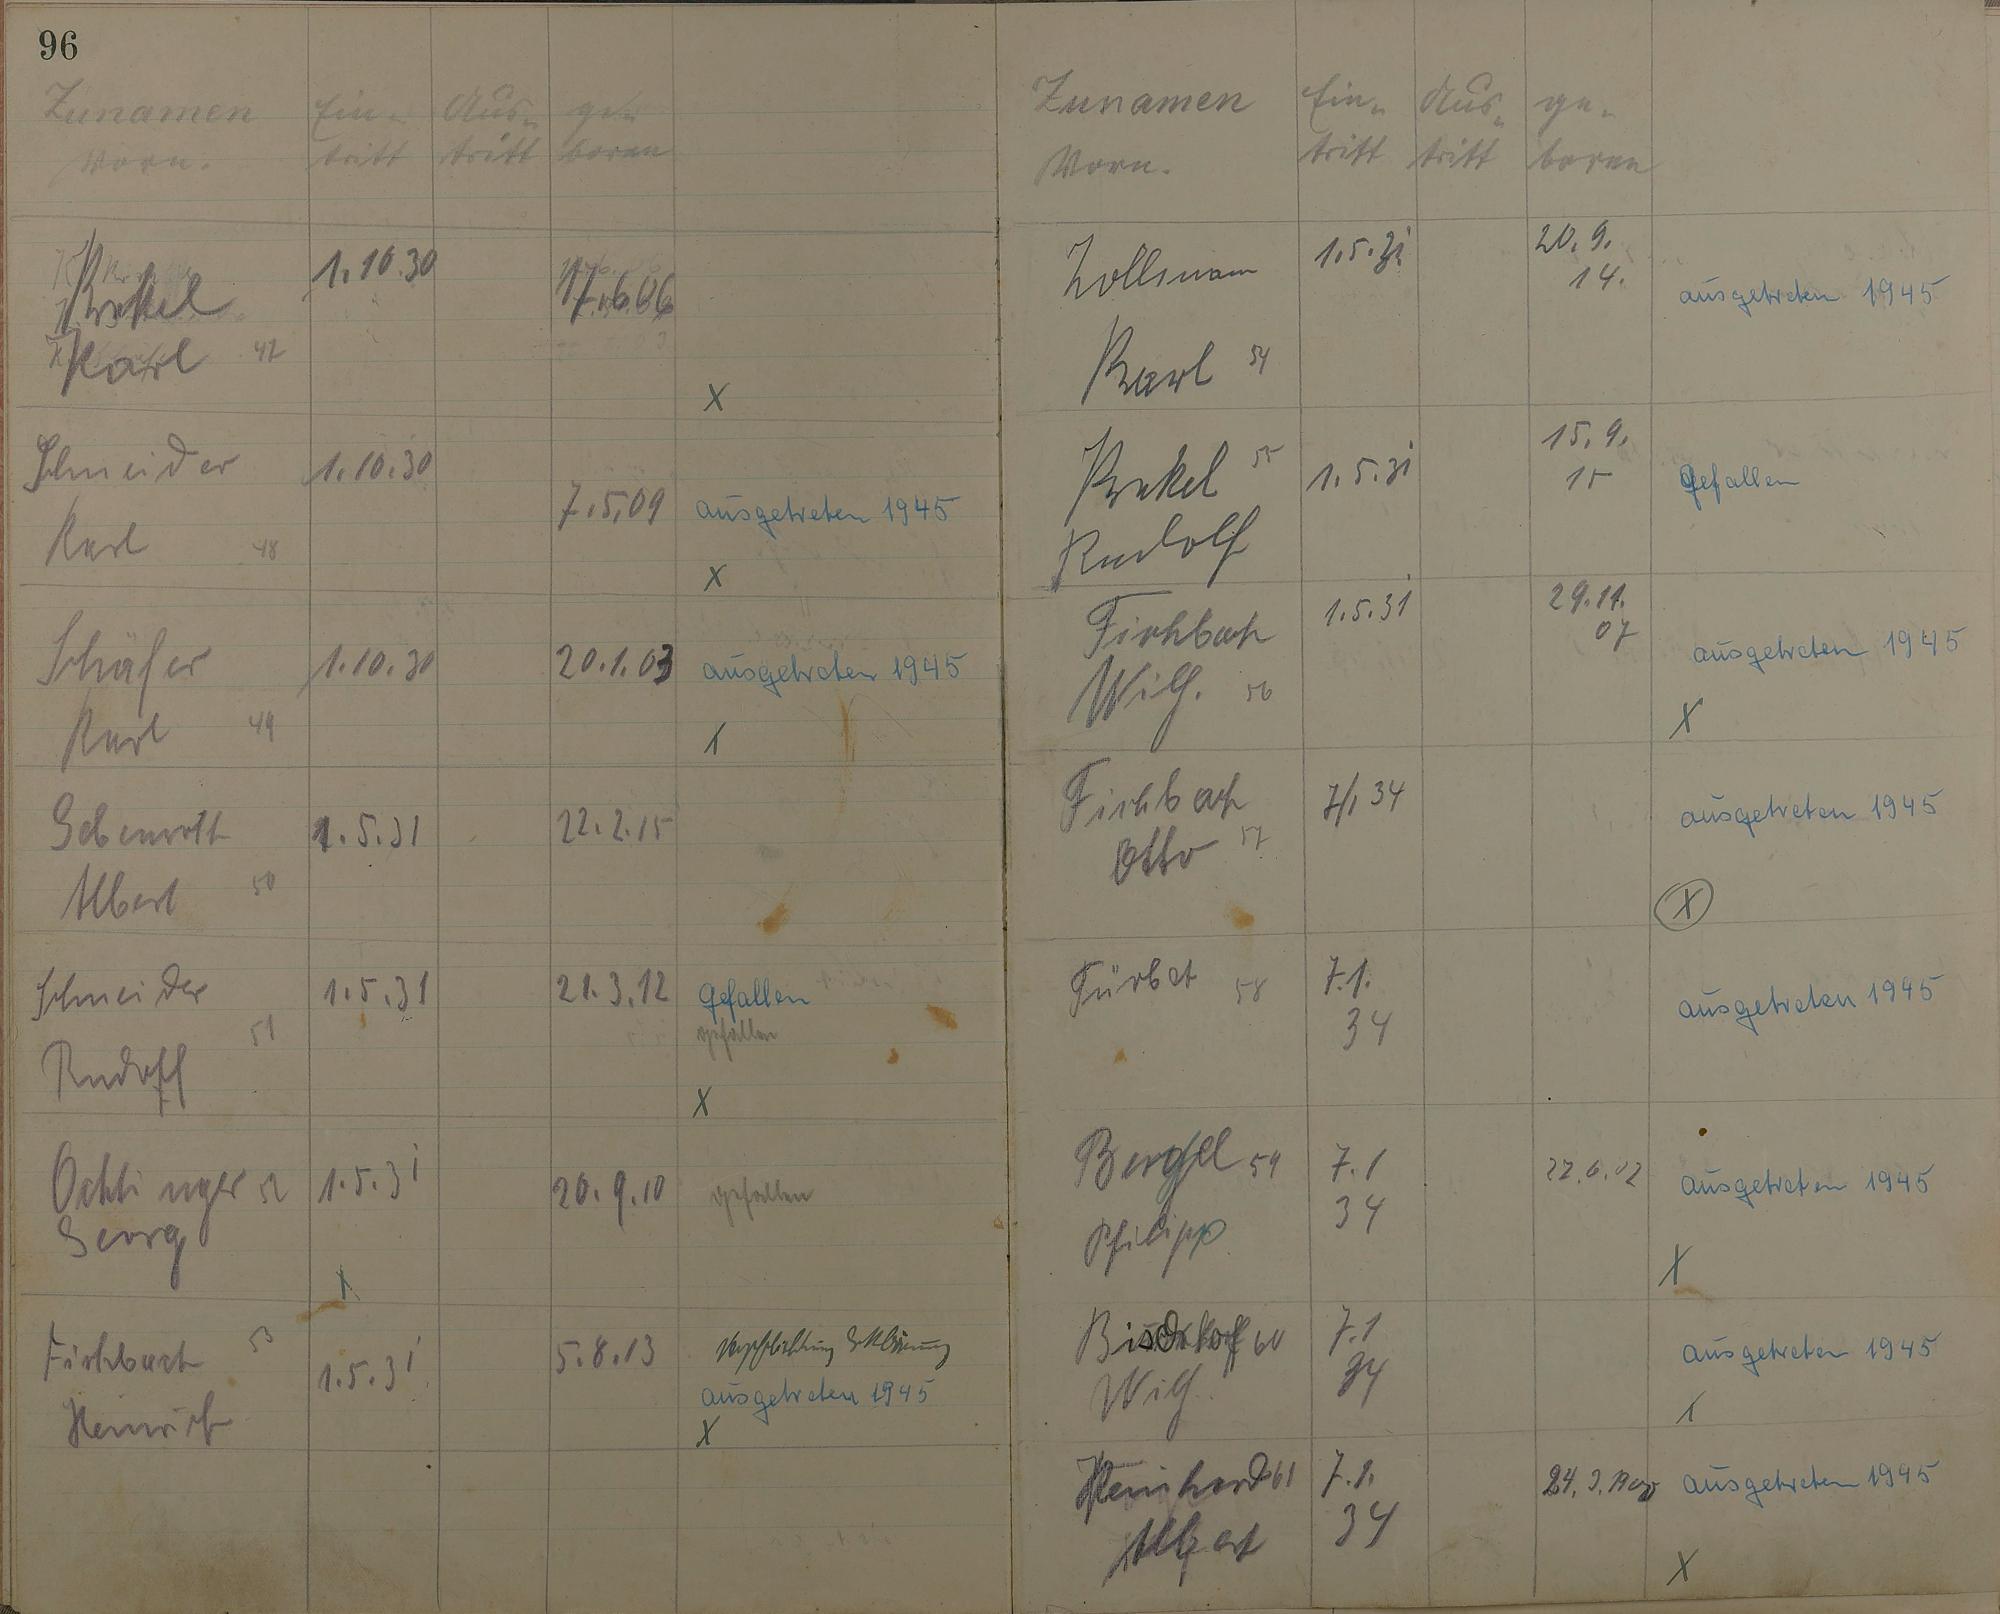 96
Zunamen Ein- Aus- ge-
Vorn. tritt tritt boren
Krekel 1.10.30 17.6.06
Karl 47
X
Schneider 1.10.30
7.5.09 ausgetreten 1945
Karl 48
X
Schäfer 1.10.30 20.1.03 ausgetreten 1945
Karl 49
X
Gebenroth 1.5.31 22.2.15
Albert 50
Schneider 1.5.31 21.3.12 gefallen
51 gefallen
Rudolf
X
Ochtinger 52 1.5.31 20.9.10 gefallen
Georg
X
Fischbach 53 1.5.31 5.8.13 Verpflichtung Erklärung
ausgetreten 1945
Heinrich X
Zunamen Ein- Aus- ge-
Vorn. tritt tritt boren
Zollmann 1.5.31 20.9.
14. ausgetreten 1945
Karl 54
Krekel 55 1.5.31 15.9.
15 gefallen
Rudolf
Fischbach 1.5.31 29.11.
07 ausgetreten 1945
Wilh. 56
X
Fischbach 7/1 34 ausgetreten 1945
Otto 57
X
Fürbet 58 7.1. ausgetreten 1945
34
Berghel 59 7.1 22.6.02 ausgetreten 1945
Philipp 34
X
60 7.1 ausgetreten 1945
Wilh. 34
X
Heinhard 61 7.1. 24.3. ausgetreten 1945
Albert 34
X